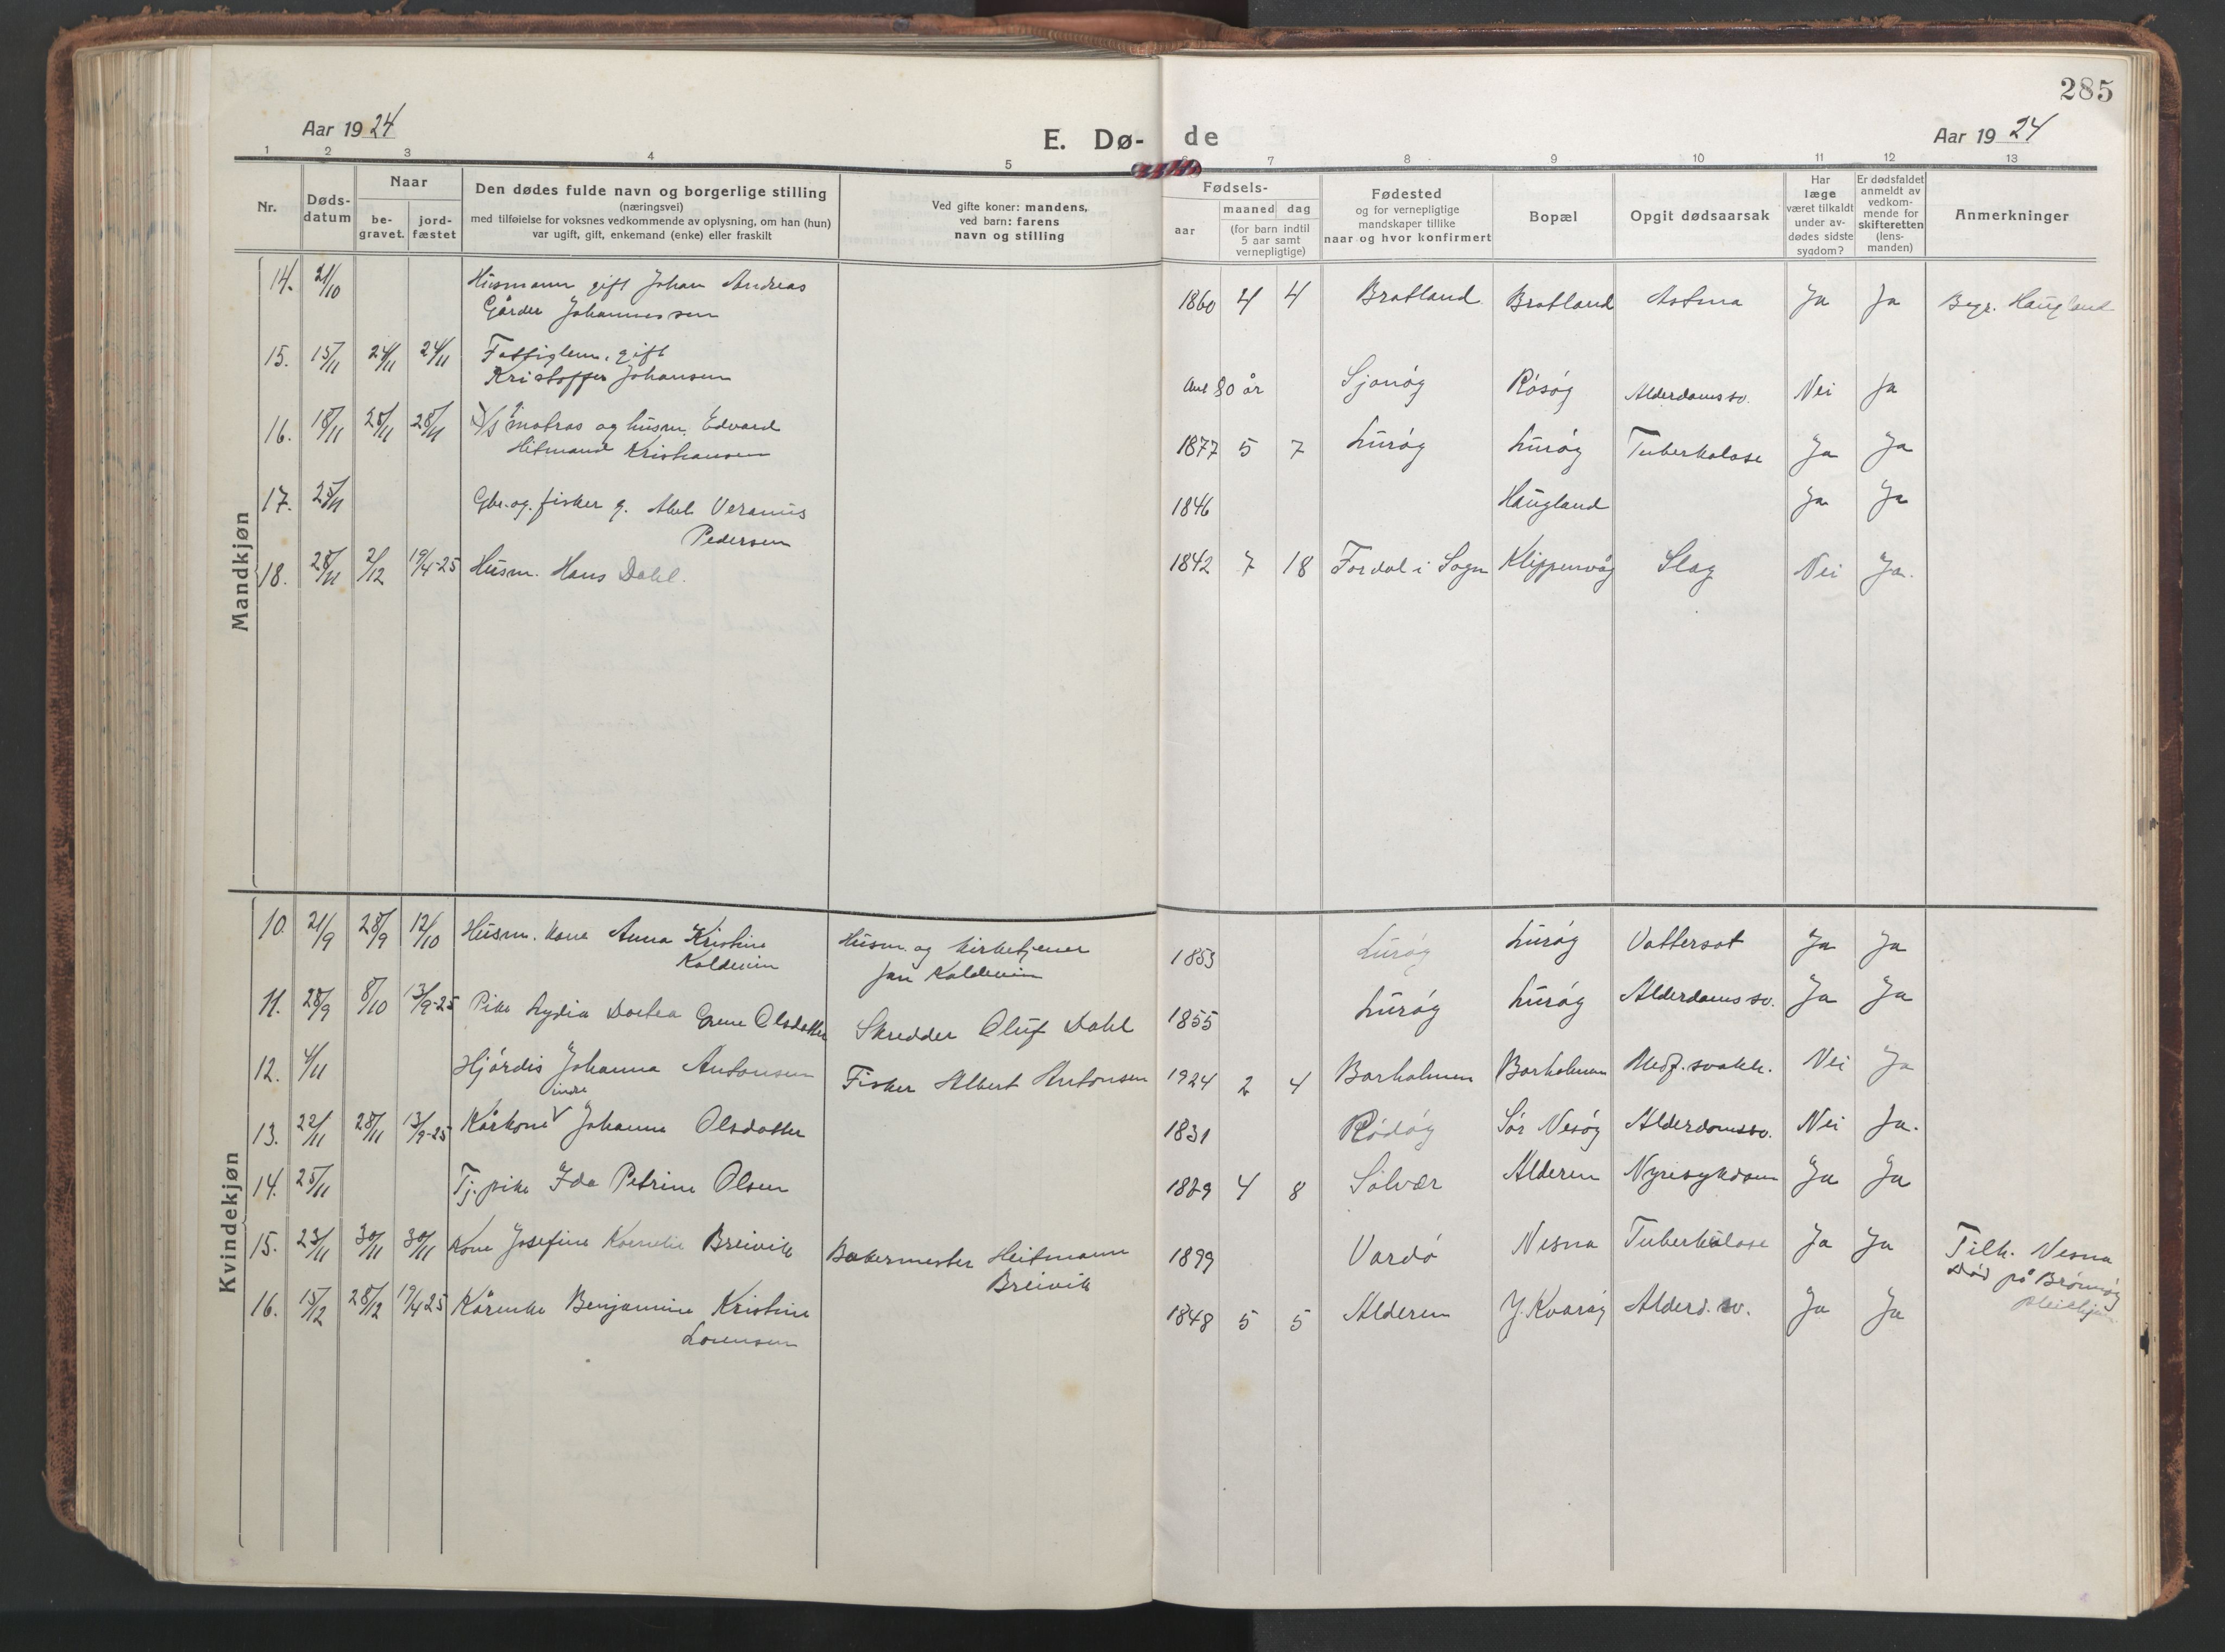 285
Aar 1924
E. Dø- de
Aar 1924
1 2 3 4 5 6 7 8 9 10 11 12 13
Nr.
Døds-
datum
Naar
be-
gravet.
jord-
fæstet
Den dødes fulde navn og borgerlige stilling
(næringsvei)
med tilføielse for voksnes vedkommende av oplysning, om han (hun)
var ugift, gift, enkemand (enke) eller fraskilt
Ved gifte koner: mandens,
ved barn: farens
navn og stilling
Fødsels-
aar
maaned dag
(for barn indtil
5 aar samt
vernepligtige)
Fødested
og for vernepligtige
mandskaper tillike
naar og hvor konfirmert
Bopæl
Opgit dødsaarsak
Har
læge
været tilkaldt
under av-
dødes sidste
sygdom?
Er dødsfaldet
anmeldt av
vedkom-
mende for
skifteretten
(lens-
manden)
Anmerkninger
Mandkjøn
14. 21/10 Husmann gift Johan Andreas
Gårder Johannessen
1860 4 4 Bratland Bratland Astma Ja Ja Begr. Haugland
15. 15/11 24/11 24/11 Fattiglem, gift
Kristoffer Johansen
Ant 80 år Sjonøy Rösöy Alderdomssv. Nei Ja
16. 18/11 28/11 28/11 matros og husm. Edvard
Hitmand Kristiansen
1877 5 7 Luröy Luröy Tuberkulose Ja Ja
17. 25/11 Gbr. og fisker g. Abel Veranius
Pedersen
1846 Haugland Ja Ja
18. 28/11 2/12 19/4-25 Husm. Hans Dahl.
1842 7 18 Fordal i Sogn Klippenvåg Slag Nei Ja.
Kvindekjøn
10. 21/9 28/9 12/10 Husm. kone Anna Kristine
Koldevin
Husm. og kirketjener
Jan Koldevin
1853 Luröy Luröy Vattersot Ja Ja
11. 28/9 8/10 13/9-25 Pike Lydia Dortea Olsdatter
Skredder Oluf Dahl
1855 Luröy Luröy Alderdomssv. Ja Ja
12. 4/11 Hjördis Johanna Antonsen
Fisker Albert Antonsen
1924 2 4 Barholmen Barholmen Medf. svakh. Nei Ja
13. 22/11 28/11 13/9-25 Kårkone Johanna Olsdatter
1831 Rödöy Sör Nesöy Alderdomssv. Nei Ja.
14. 25/11 Tj. pike Ida Petrine Olsen
1889 4 8 Solvær Alderen Nyresykdom Ja Ja
15. 23/11 30/11 30/11 Kone Josefine Kornelie Breivik
Bakermester Heitmann
Breivik
1899 Vardö Nesna Tuberkulose Ja Ja Tilh. Nesna
död på Brönnöy
16. 15/12 28/12 19/4 25 Kårenke Benjamine Kristine
Lorensen
1848 5 5 Alderen Y. Kvaröy Alderd. sv. Ja Ja